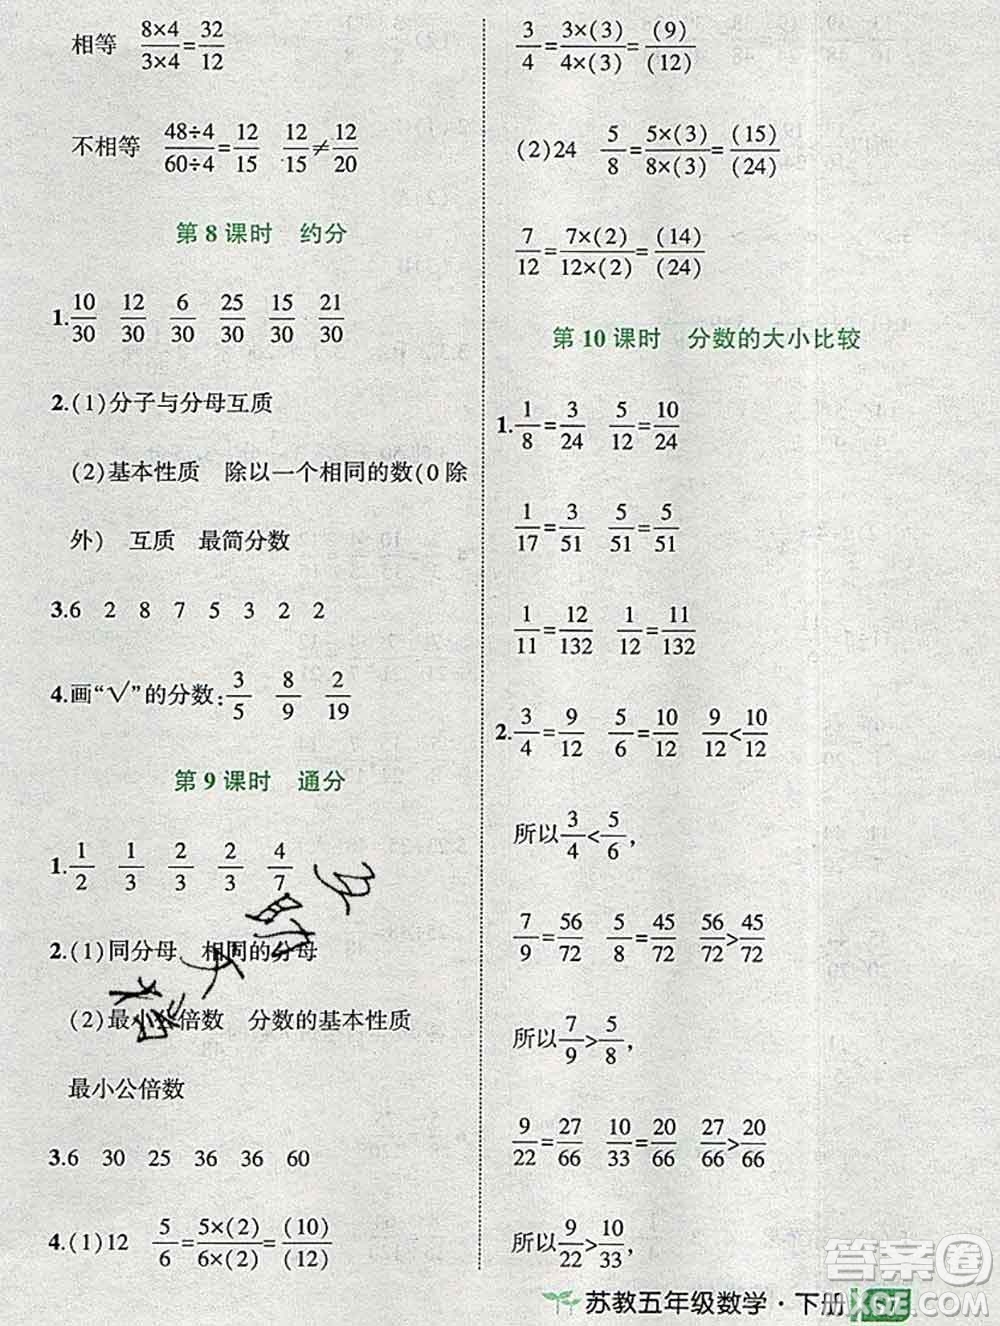 相等 8×4/3×4=32/12
不相等 48÷4/60÷4=12/15 12/15≠12/20
第8课时 约分
1.10/30 12/30 6/30 25/30 15/30 21/30
2.(1)分子与分母互质
(2)基本性质 除以一个相同的数(0除
外) 互质 最简分数
3.6 2 8 7 5 3 2 2
4.画“√”的分数:3/5 8/9 2/19
第9课时 通分
1.1/2 1/3 2/3 2/3 4/7
2.(1)同分母 相同的分母
(2)最小公倍数 分数的基本性质
最小公倍数
3.6 30 25 36 36 60
4.(1)12 5/6=5×(2)/6×(2)=(10)/(12)
3/4=3×(3)/4×(3)=(9)/(12)
(2)24 5/8=5×(3)/8×(3)=(15)/(24)
7/12=7×(2)/12×(2)=(14)/(24)
第10课时 分数的大小比较
1.1/8=3/24 5/12=10/24
1/17=3/51 5/51=5/51
1/11=12/132 1/12=11/132
2.3/4=9/12 5/6=10/12 9/12<10/12
所以3/4<5/6,
7/9=56/72 5/8=45/72 56/72>45/72
所以7/9>5/8,
9/22=27/66 10/33=20/66 27/66>20/66
所以9/22>10/33,
苏教五年级数学·下册 67
答案圈